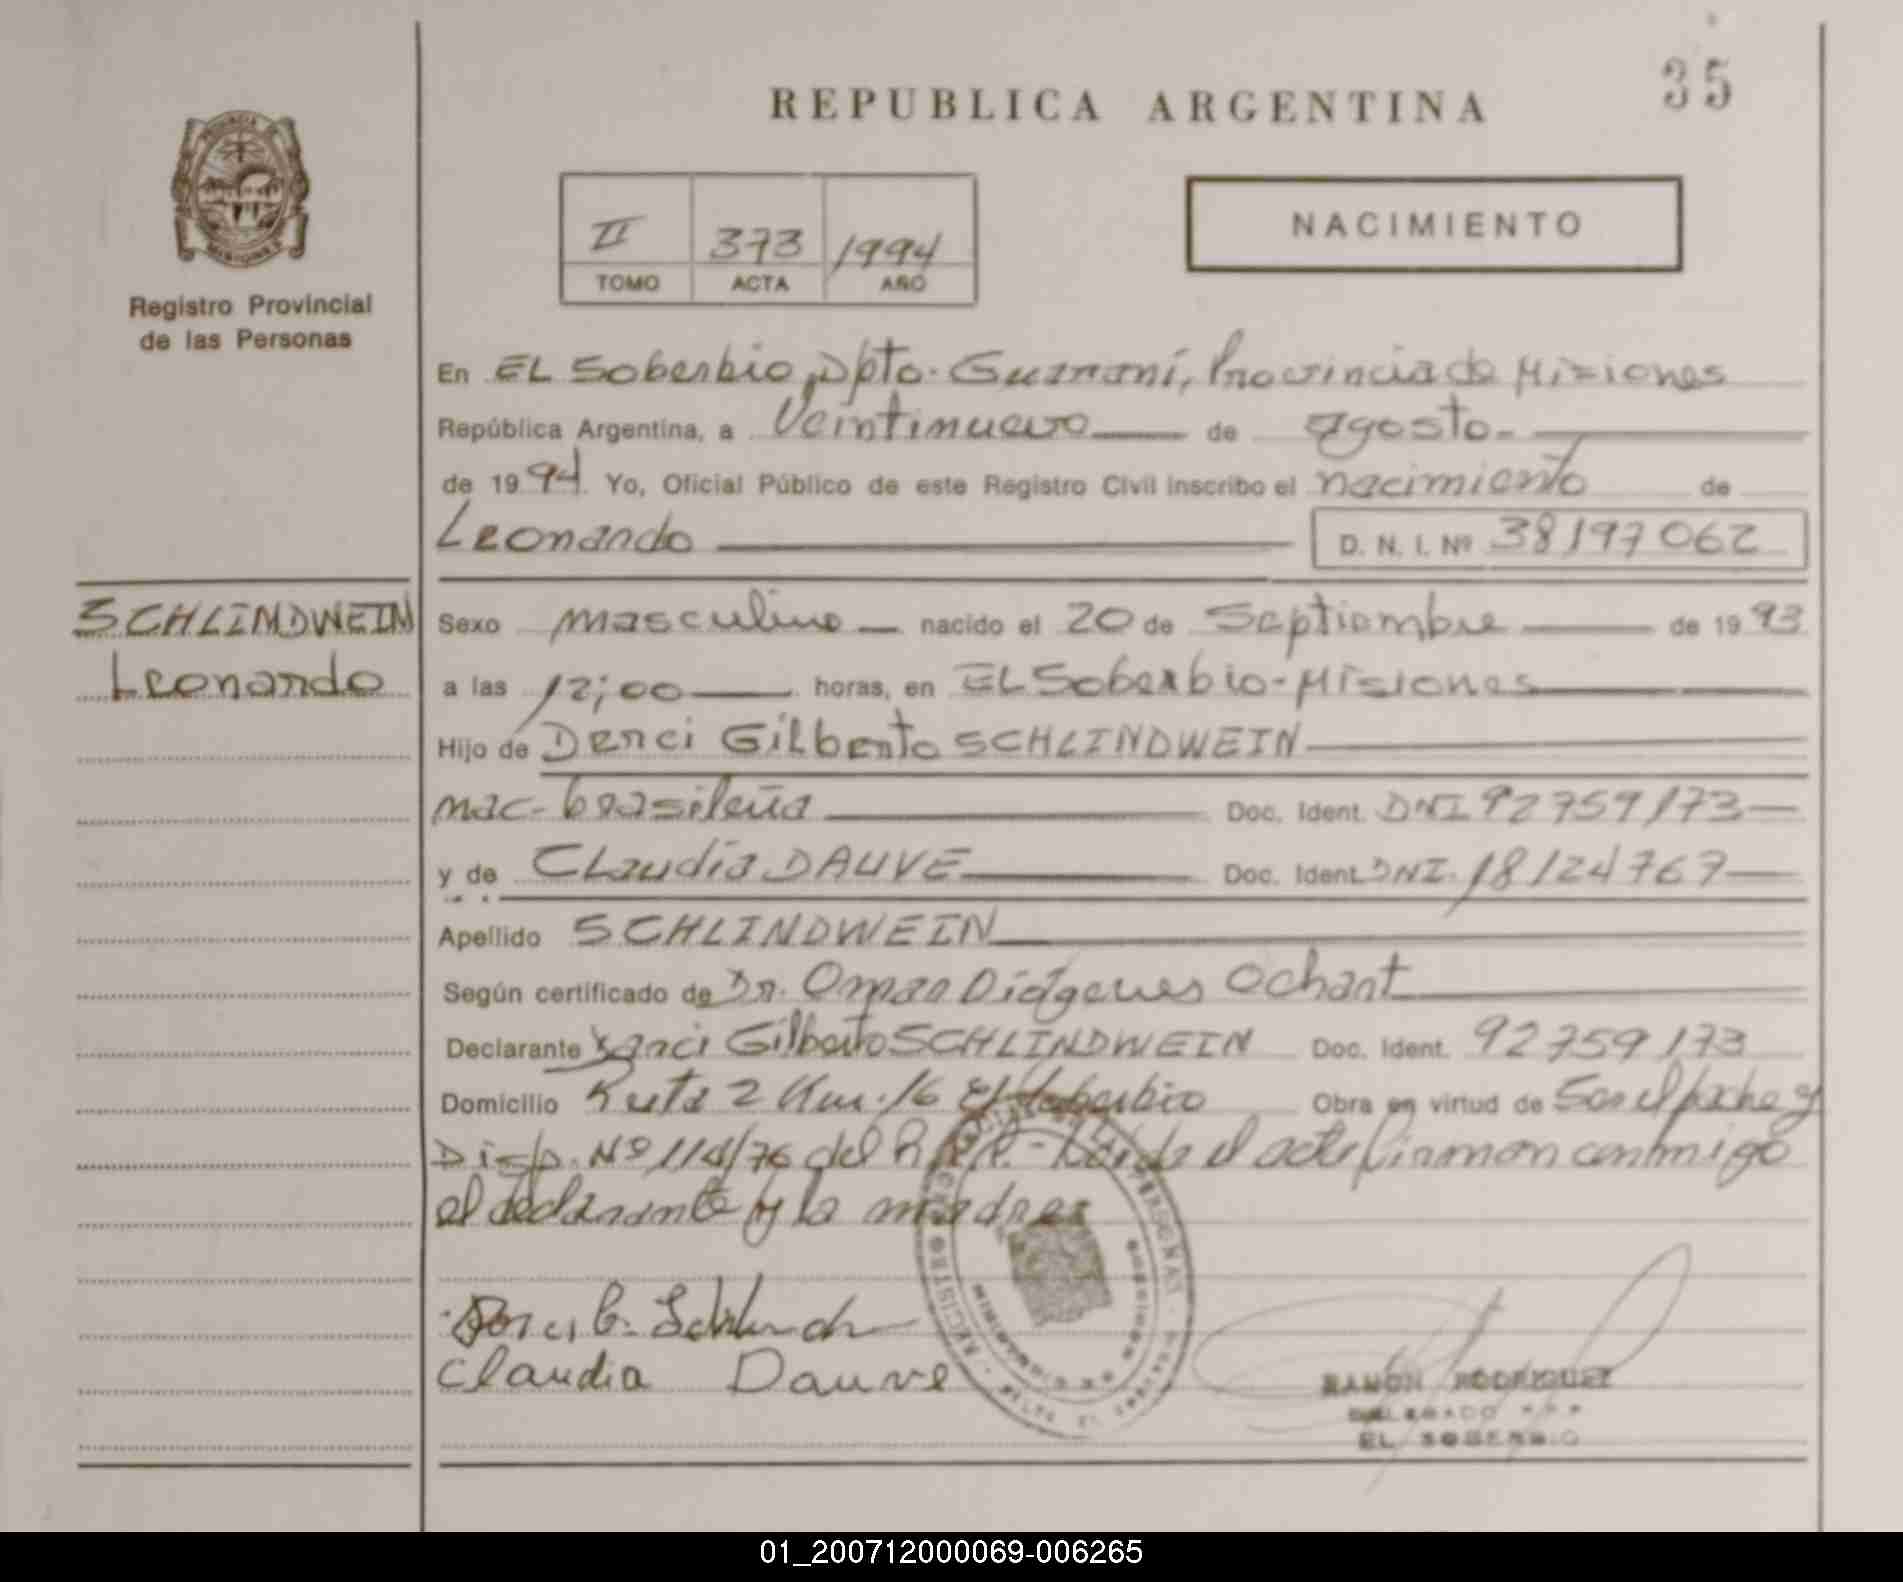 35
REPUBLICA ARGENTINA
NACIMIENTO
II 373 1994
TOMO ACTA AÑO
Registro Provincial
de las Personas
En EL Soberbio, Dpto. Guaraní, Provincia de Misiones
República Argentina, a Veintinueve de agosto
de 1994 Yo, Oficial Público de este Registro Civil inscribo el nacimiento de
Leonardo D. N. I. Nº 38197062
SCHLINDWEIN
Leonardo
Sexo masculino nacido el 20 de Septiembre de 1993
a las 12;00 horas, en EL Soberbio-Misiones
Hijo de Derci Gilberto SCHLINDWEIN
nac- brasileña Doc. Ident. DNI 92759173
y de Claudia DAUVE Doc. Ident. DNI. 18124767
Apellido SCHLINDWEIN
Según certificado de Dr. Omar Diógenes Ochant
Declarante Derci Gilberto SCHLINDWEIN Doc. Ident. 92759173
Domicilio Ruta 2 Km. 16 El Soberbio Obra en virtud de
Disp. Nº 114/76 del R.P.P.- Leída el acta firman conmigo
el declarante y la madre
Derci G. Schlind
Claudia Dauve
RAMON RODRIGUEZ
DELEGADO
EL SOBERBIO
01_200712000069-006265